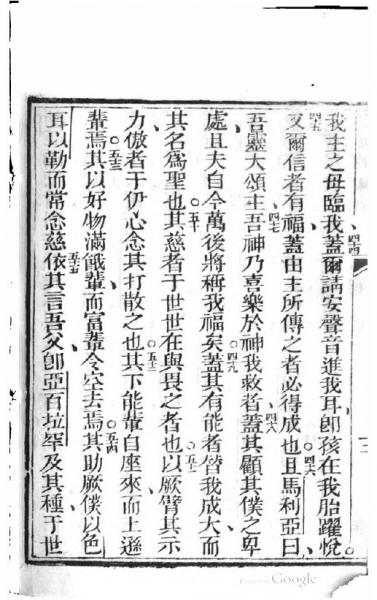 我主之母臨我蓋爾請安聲音進我耳卽孩在我胎躍悅
又爾信者有福蓋由主所傳之者必得成也且馬利亞曰
吾靈大頌主吾神乃喜樂於神我救者蓋其顧其僕之卑
處且夫自今萬後將稱我福矣蓋其有能者替我成大而
其名爲聖也其慈者于世世在與畏之者也以厥臂其示
力傲者于伊心念其打散之也其下能輩自座來而上遜
輩焉其以好物滿餓輩而富輩令空去焉其助厥僕以色
耳以勒而常念慈依其言吾父卽亞百垃罕及其種于世
四四
四五
四六
四七
四八
四九
五十
五一
五二
五三
五四
五五
Google